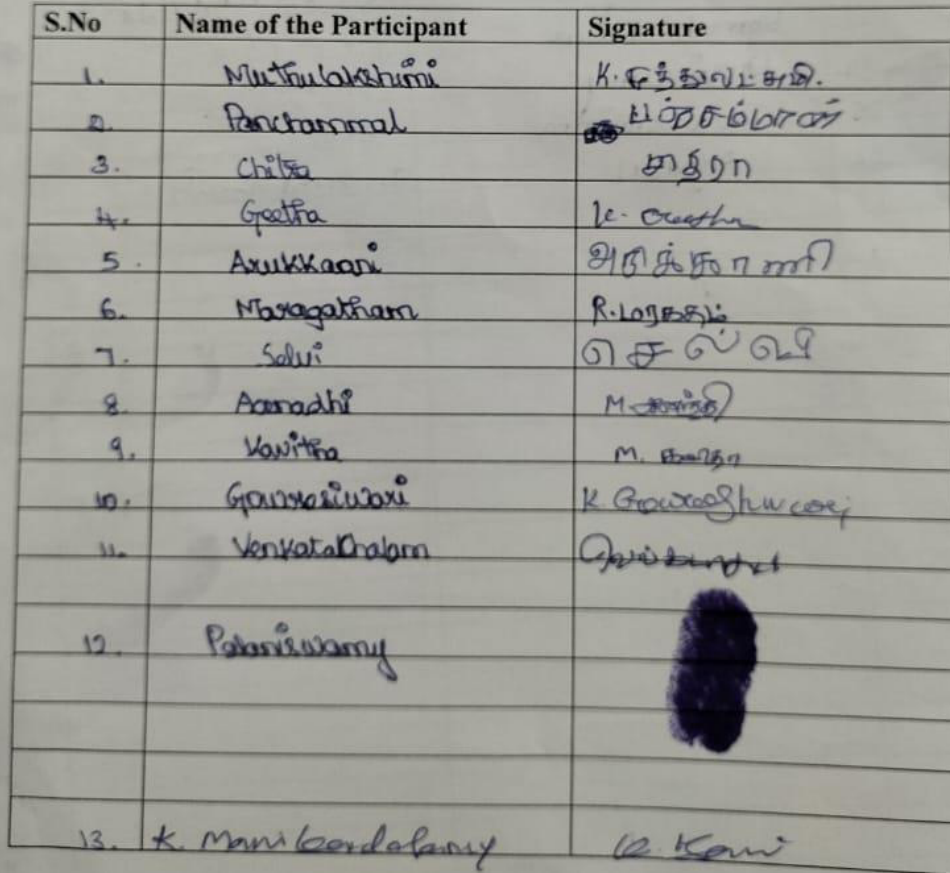 S.No Name of the Participant Signature
1. Muthulakshimi K. முத்துலட்சுமி.
2. Panchammal
3. Chitra சித்ரா
4. Geetha K. Geetha
5. Arukkaani அருக்காணி
6. Maragatham R. மரகதம்
7. Selvi செல்வி
8. Aanadhi M.
9. Kavitha M. கவிதா
10. Gowrasiwari K. Gowreeshwari
11. Venkatachalam
12. Palaniswamy
13. K.